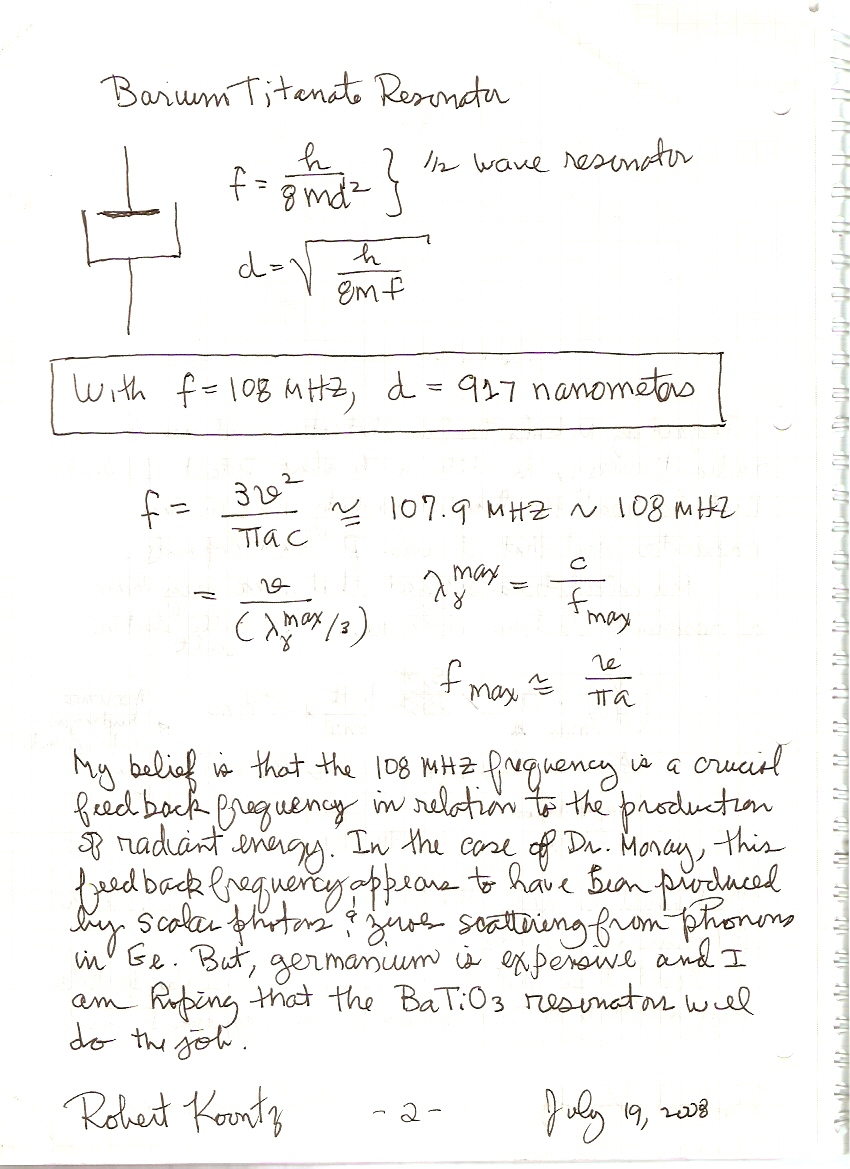 Barium Titanate Resonator
f = h / 8md² } 1/2 wave resonator
d = √(h / 8mf)
With f = 108 MHZ, d = 917 nanometers
f = 3v² / πac ≅ 107.9 MHZ ~ 108 MHZ
= v / (λγ^max/3) λγ^max = c / f max
f max ≅ v / πa
My belief is that the 108 MHZ frequency is a crucial
feedback frequency in relation to the production
of radiant energy. In the case of Dr. Moray, this
feedback frequency appears to have been produced
by scalar photons & scattering from phonons
in Ge. But, germanium is expensive and I
am hoping that the BaTiO3 resonators will
do the job.
Robert Koontz - 2 - July 19, 2008